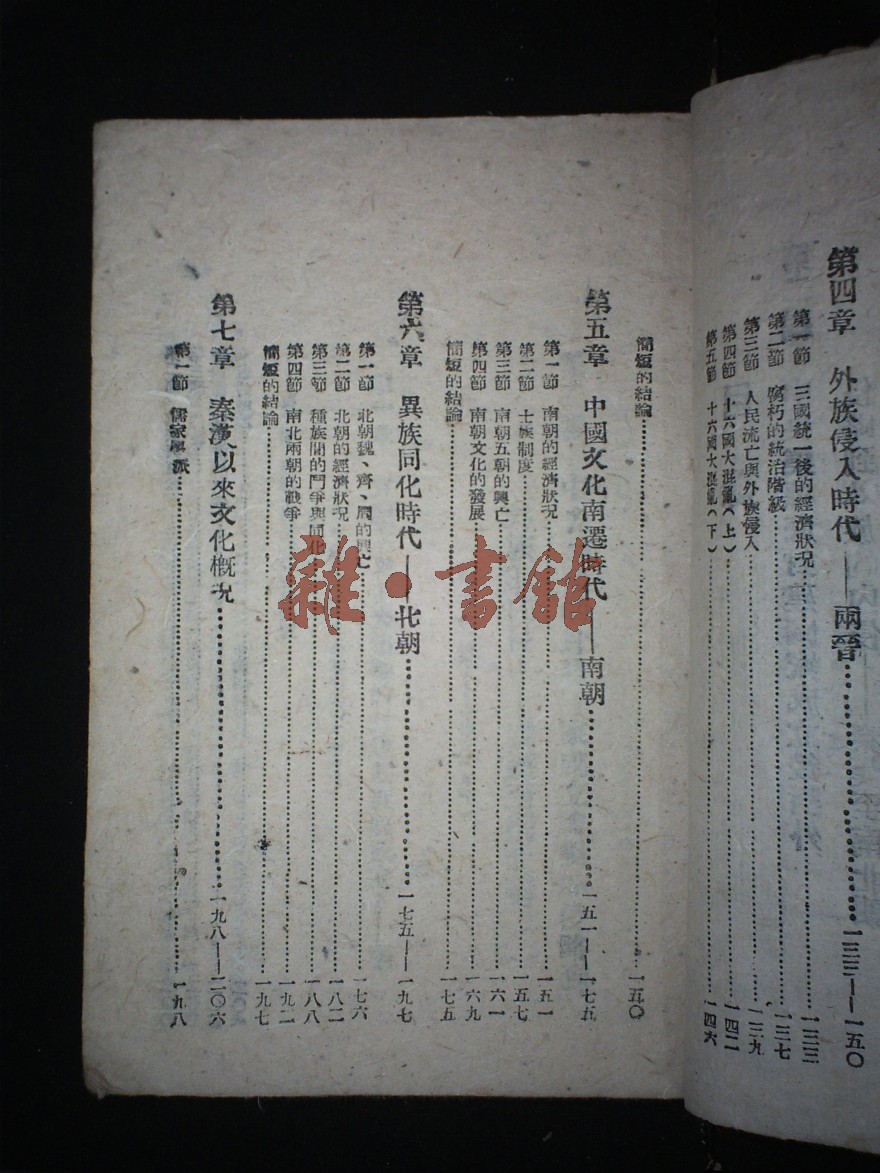 第四章　外族侵入時代——兩晉…………一三三——一五〇
第一節　三國統一後的經濟狀況…………一三三
第二節　腐朽的統治階級…………一三七
第三節　人民流亡與外族侵入…………一三九
第四節　十六國大混亂（上）…………一四二
第五節　十六國大混亂（下）…………一四六
簡短的結論…………一五〇
第五章　中國文化南遷時代——南朝…………一五一——一七五
第一節　南朝的經濟狀況…………一五一
第二節　士族制度…………一五七
第三節　南朝五朝的興亡…………一六一
第四節　南朝文化的發展…………一六九
簡短的結論…………一七五
第六章　異族同化時代——北朝…………一七五——一九七
第一節　北朝魏、齊、周的興亡…………一七六
第二節　北朝的經濟狀況…………一八二
第三節　種族間的鬥爭與同化…………一八八
第四節　南北兩朝的戰爭…………一九二
簡短的結論…………一九七
第七章　秦漢以來文化概況…………一九八——二〇六
第一節　儒家學派…………一九八
雜·書館